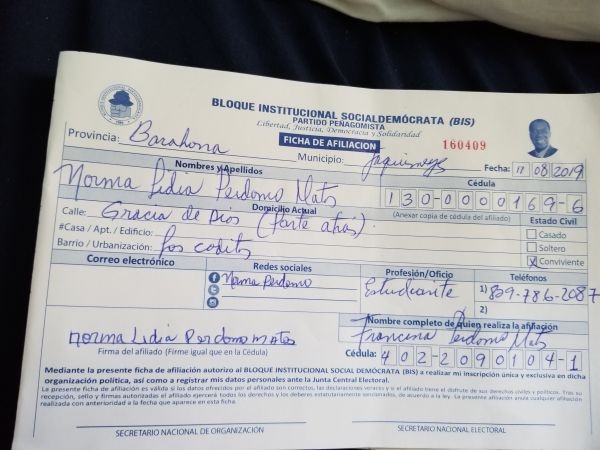 BLOQUE INSTITUCIONAL SOCIALDEMÓCRATA (BIS)
PARTIDO PEÑAGOMISTA
Libertad, Justicia, Democracia y Solidaridad
FICHA DE AFILIACION 160409
Provincia: Barahona Municipio: Jaquimeyes Fecha: 11 08 2019
Nombres y Apellidos Cédula
Norma Lidia Perdomo Matos 130-0000169-6
Domicilio Actual (Anexar copia de cédula del afiliado) Estado Civil
Calle: Gracia de Dios (parte atras) Casado
#Casa / Apt. / Edificio: Soltero
Barrio / Urbanización: Los coditos X Conviviente
Correo electrónico Redes sociales Profesión/Oficio Teléfonos
Norma Perdomo Estudiante 1) 809-786-2087
2)
Nombre completo de quien realiza la afiliación
Norma Lidia Perdomo Matos Francina Perdomo Mats
Firma del afiliado (Firme igual que en la Cédula) Cédula: 402-2090104-1
Mediante la presente ficha de afiliación autorizo al BLOQUE INSTITUCIONAL SOCIAL DEMÓCRATA (BIS) a realizar mi inscripción única y exclusiva en dicha
organización política, así como a registrar mis datos personales ante la Junta Central Electoral.
La presente ficha de afiliación es válida si los datos ofrecidos por el afiliado son correctos, las declaraciones veraces y si el afiliado tiene el disfrute de sus derechos civiles y políticos. Tras su
recepción, sello y firmas autorizadas el afiliado ejercerá todos los derechos y los deberes estatutariamente sancionados, de acuerdo a la ley. La presente afiliación anula cualquier afiliación
realizada con anterioridad a la fecha que aparece en esta ficha.
SECRETARIO NACIONAL DE ORGANIZACIÓN SECRETARIO NACIONAL ELECTORAL